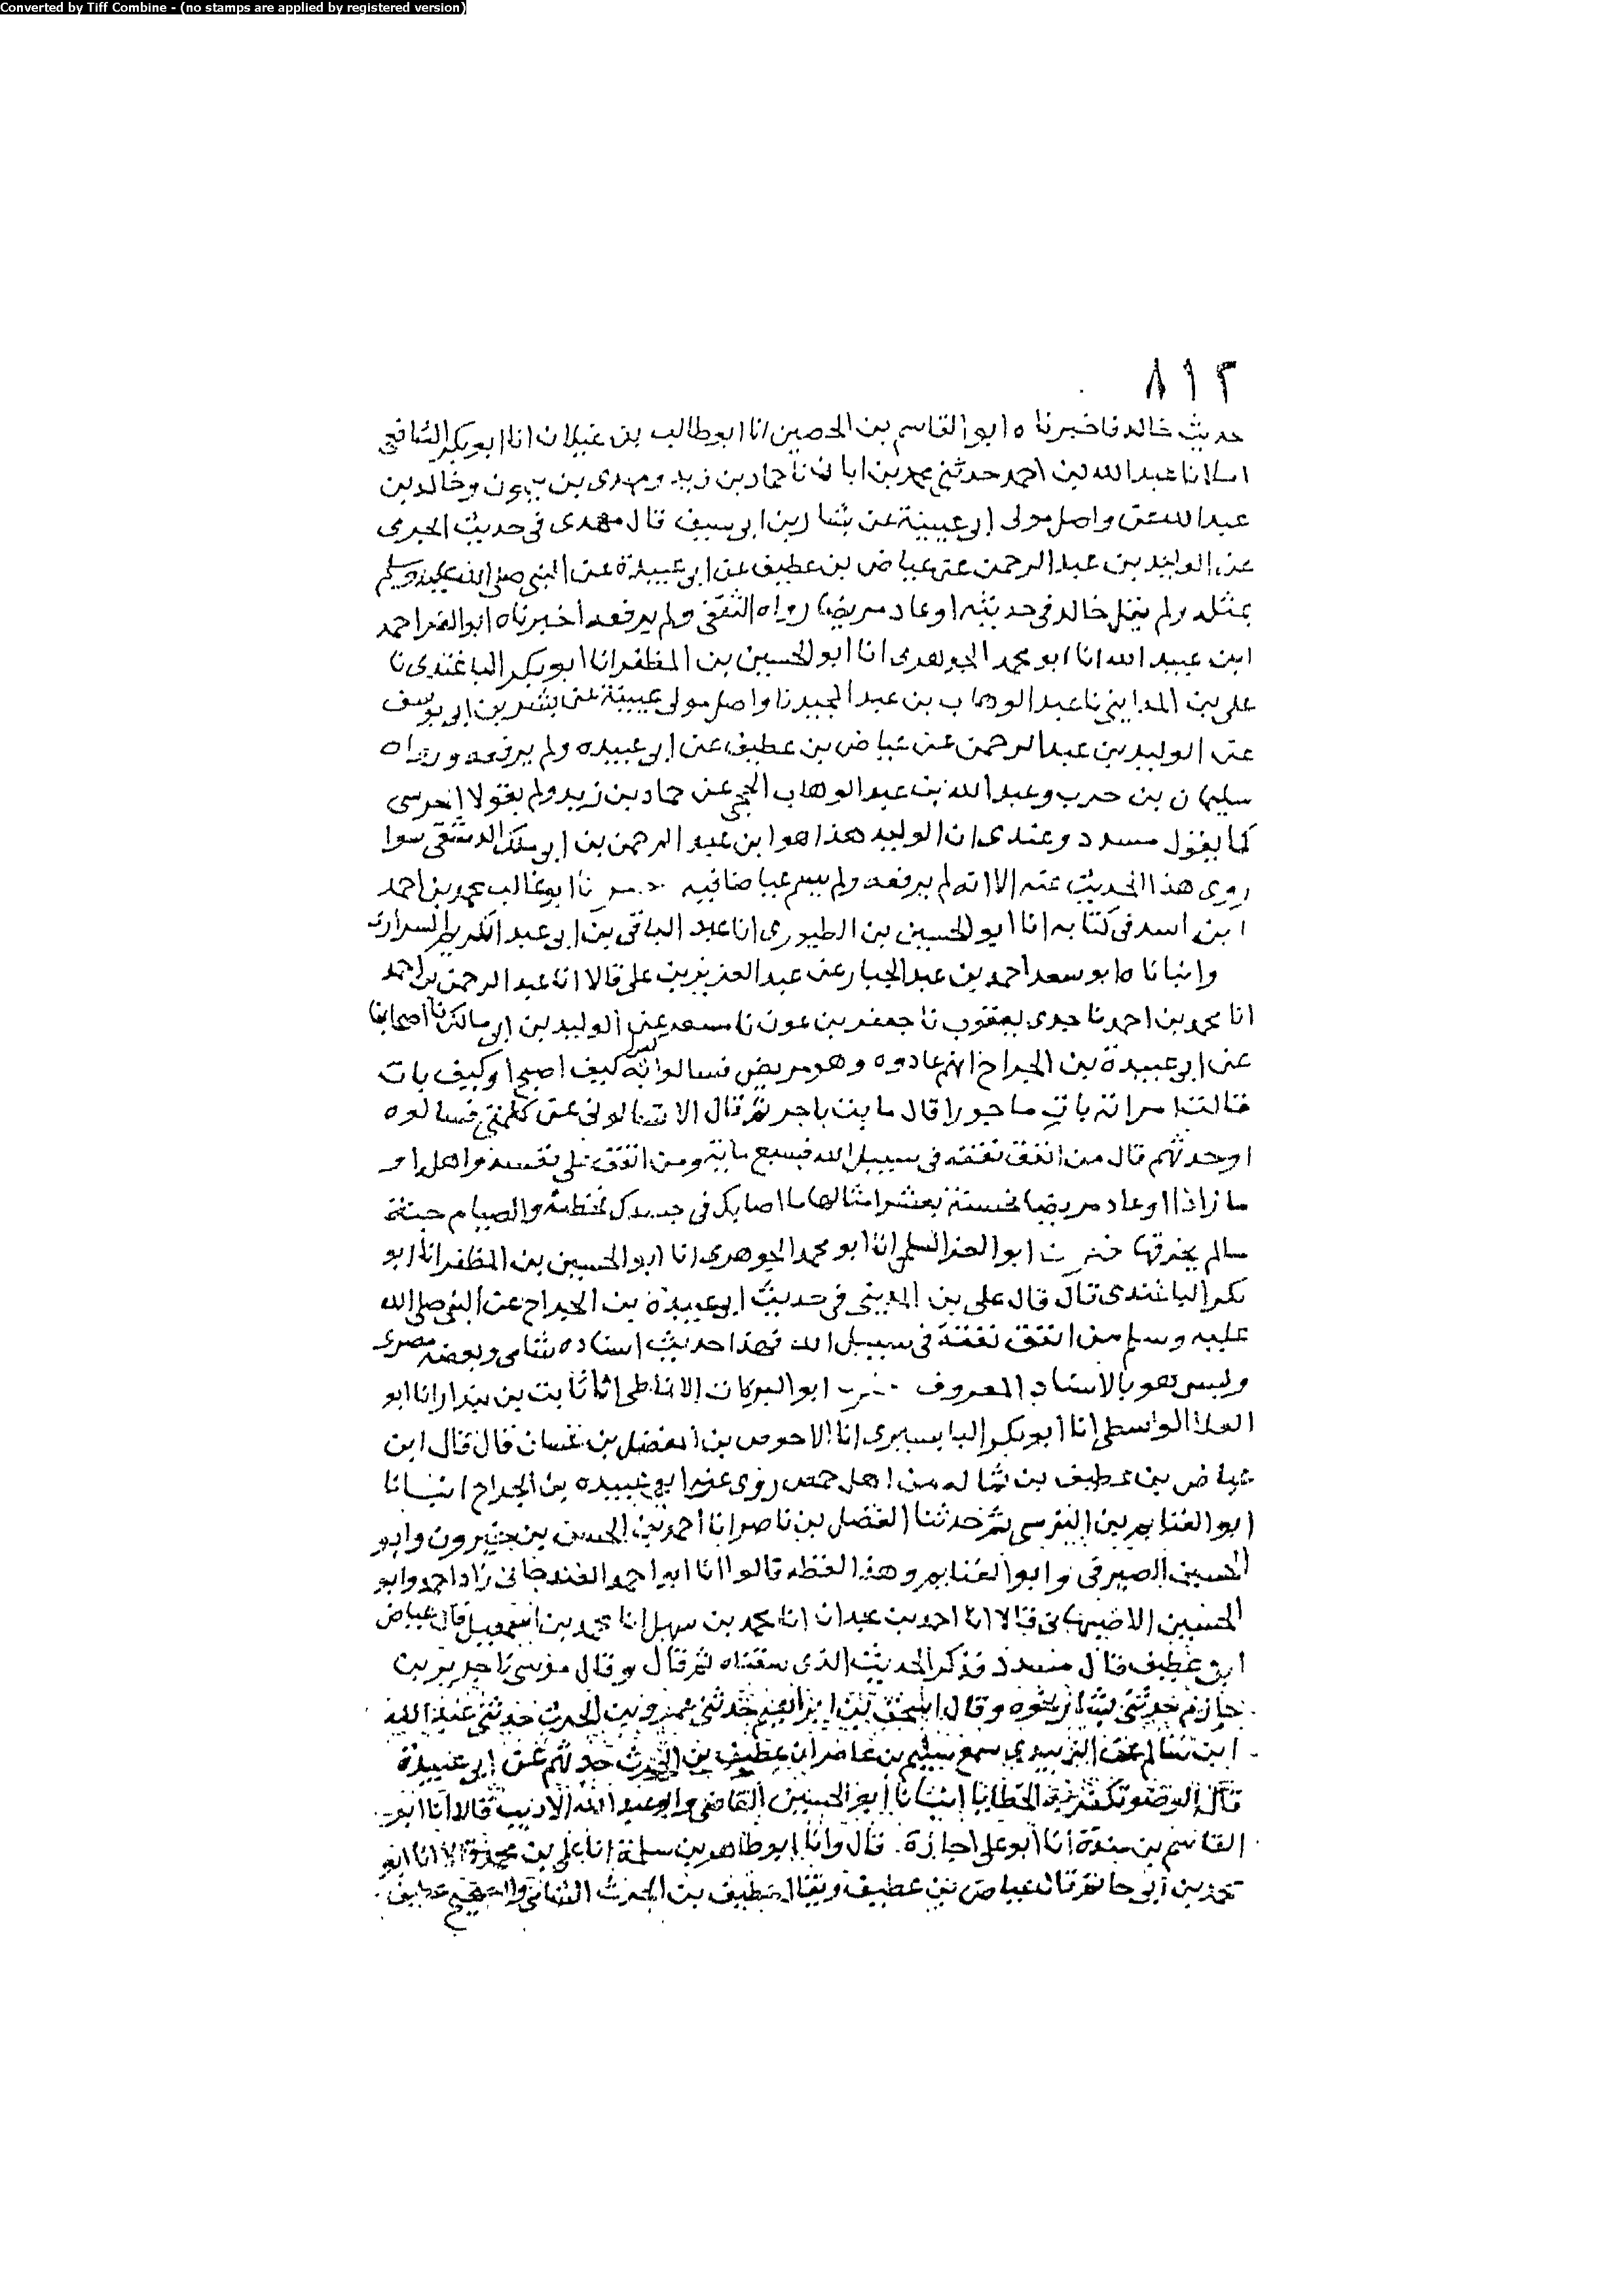 Converted by Tiff Combine - (no stamps are applied by registered version)
٨١٢
حديث خالد فاخبرناه ابو القاسم بن الحصين انا ابو طالب بن غيلان انا ابو بكر الشافعي
املا نا عبد الله بن احمد حدثني محمد بن ابان نا حماد بن زيد ومهدى بن ميمون وخالد بن
عبد الله عن واصل مولى ابى عيينة عن بشار بن ابى سيف قال مهدى فى حديث الجرمى
عن الوليد بن عبد الرحمن عن عياض بن عطيف عن ابى عبيدة عن النبي صلى الله عليه وسلم
بمثله ولم يقل خالد فى حديثه او عاد مريضا رواه الثقفى ولم يرفعه اخبرناه ابو العز احمد
ابن عبيد الله انا ابو محمد الجوهرى انا ابو الحسين بن المظفر انا ابو بكر الباغندى نا
على بن المدينى نا عبد الوهاب بن عبد المجيد نا واصل مولى عيينة عن بشر بن ابى يوسف
عن الوليد بن عبد الرحمن عن عياض بن عطيف عن ابى عبيده ولم يرفعه ورواه
سليمان بن حرب وعبد الله بن عبد الوهاب الحجبى عن حماد بن زيد ولم يقولا الجرسى
كما يقول مسدد وعندى ان الوليد هذا هو ابن عبد الرحمن بن ابى ملك الدمشقى سوا
روى هذا الحديث عنه الا انه لم يرفعه ولم يسم عياضا فيه نا ابو غالب محمد بن احمد
ابن اسد فى كتابه انا ابو الحسين بن الطيورى انا عبد الباقى بن ابى عبد الكريم
وانبانا ه ابو سعد احمد بن عبد الجبار عن عبد العزيز بن على قالا انا عبد الرحمن بن احمد
انا محمد بن احمد نا جدى يعقوب نا جعفر بن عون نا مسعر عن الوليد بن ابى مالك نا اصحابنا
عن ابى عبيدة بن الجراح انهم عادوه وهو مريض فسالوا كيف اصبح او كيف بات
فقالت امراته بات ماجورا قال ما بت باجر ثم قال الا تسالونى عن كلمتى فسالوه
او حدثهم قال من انفق نفقه فى سبيل الله فبسبع ماية ومن انفق على نفسه واهله او
ماز اذا او عاد مريضا فحسنة بعشر امثالها ما اصابك فى جسدك فحطة والصيام جنة
مالم يخرقها ابو العز السلمى انا ابو محمد الجوهرى انا ابو الحسين بن المظفر انا ابو
بكر الباغندى قال قال على بن المدينى فى حديث ابى عبيدة بن الجراح عن النبى صلى الله
عليه وسلم من انفق نفقة فى سبيل الله فهذا حديث اسناده شامى وبعضه مصرى
وليس هو بالاسناد المعروف ابو البركات الانماطى انا ثابت بن بندار انا ابو
العلا الواسطى انا ابو بكر البابسيرى انا الاحوص بن المفضل بن غسان قال قال ابن
عياض بن عطيف بن من اهل حمص روى عن ابى عبيده بن الجراح انبانا
ابو الغنايم بن النرسى ثم حدثنا الفضل بن ناصر انا احمد بن الحسن بن خيرون وابو
الحسين الصيرفى وابو الغنايم وهذا لفظه قالوا انا ابو احمد الغندجانى زاد احمد وابو
الحسين الاصبهانى قالا انا احمد بن عبدان انا محمد بن سهل انا محمد بن اسمعيل قال عياض
ابن عطيف قال مسدد فذكر الحديث الذى سقناه ثم قال وقال موسى نا جرير بن
حازم حدثنى بشار نحوه وقال اسحق بن ابراهيم حدثنى عمرو بن الحرث حدثنى عبد الله
ابن سالم عن الزبيدى سمع سليم بن عامر ان عطيف بن الحرث حدثهم عن ابى عبيدة
قال الوضو تكفر به الخطايا انبانا ابو الحسين القاضى وابو عبد الله الاديب قالا انا ابو
القاسم بن مندة انا ابو على اجازة. قال وانا ابو طاهر بن سلمة انا على بن محمد قالا انا ابو
محمد بن ابى حاتم قال عياض بن عطيف ويقال عطيف بن الحرث والصحيح عطيف